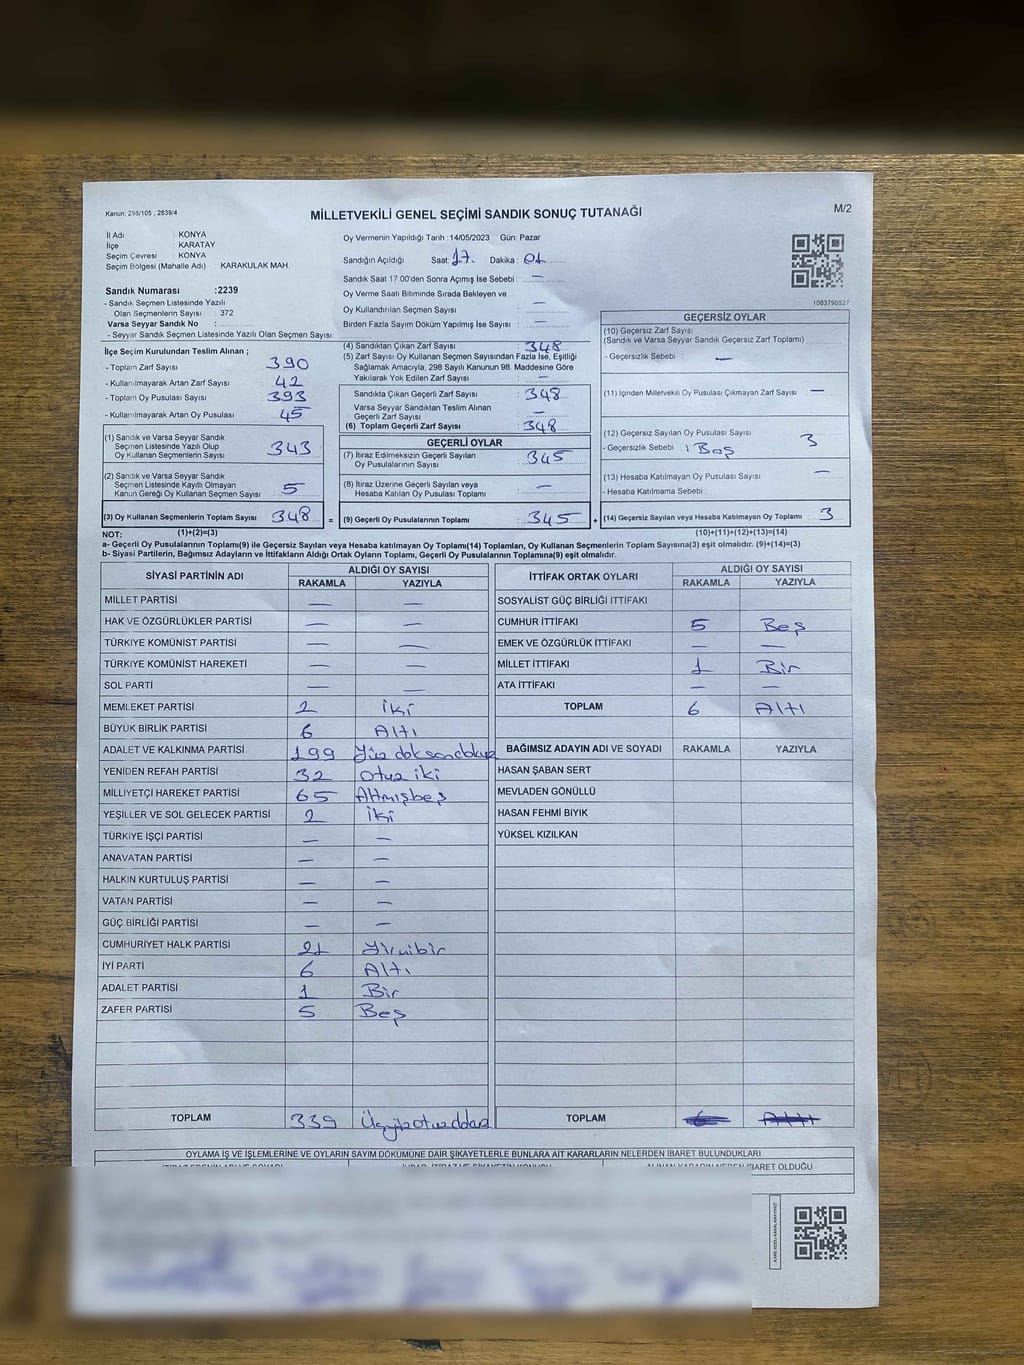 Kanun: 298/105 ; 2839/4
MİLLETVEKİLİ GENEL SEÇİMİ SANDIK SONUÇ TUTANAĞI
M/2
İl Adı : KONYA
İlçe : KARATAY
Seçim Çevresi : KONYA
Seçim Bölgesi (Mahalle Adı) : KARAKULAK MAH.
Sandık Numarası :2239
- Sandık Seçmen Listesinde Yazılı
Olan Seçmenlerin Sayısı : 372
Varsa Seyyar Sandık No :
- Seyyar Sandık Seçmen Listesinde Yazılı Olan Seçmen Sayısı:
Oy Vermenin Yapıldığı Tarih :14/05/2023 Gün: Pazar
Sandığın Açıldığı Saat: 17. Dakika: 01
Sandık Saat 17:00'den Sonra Açımış İse Sebebi : —
Oy Verme Saati Bitiminde Sırada Bekleyen ve
Oy Kullandırılan Seçmen Sayısı : —
Birden Fazla Sayım Döküm Yapılmış İse Sayısı : —
1083790527
İlçe Seçim Kurulundan Teslim Alınan ;
- Toplam Zarf Sayısı : 390
- Kullanılmayarak Artan Zarf Sayısı : 42
- Toplam Oy Pusulası Sayısı : 393
- Kullanılmayarak Artan Oy Pusulası : 45
(1) Sandık ve Varsa Seyyar Sandık
Seçmen Listesinde Yazılı Olup
Oy Kullanan Seçmenlerin Sayısı : 343
(2) Sandık ve Varsa Seyyar Sandık
Seçmen Listesinde Kayıtlı Olmayan
Kanun Gereği Oy Kullanan Seçmen Sayısı : 5
(3) Oy Kullanan Seçmenlerin Toplam Sayısı : 348 =
(4) Sandıktan Çıkan Zarf Sayısı : 348
(5) Zarf Sayısı Oy Kullanan Seçmen Sayısından Fazla İse, Eşitliği
Sağlamak Amacıyla, 298 Sayılı Kanunun 98. Maddesine Göre
Yakılarak Yok Edilen Zarf Sayısı : —
Sandıkta Çıkan Geçerli Zarf Sayısı : 348
Varsa Seyyar Sandıktan Teslim Alınan
Geçerli Zarf Sayısı : —
(6) Toplam Geçerli Zarf Sayısı : 348
GEÇERLİ OYLAR
(7) İtiraz Edilmeksizin Geçerli Sayılan
Oy Pusulalarının Sayısı : 345
(8) İtiraz Üzerine Geçerli Sayılan veya
Hesaba Katılan Oy Pusulası Toplamı : —
(9) Geçerli Oy Pusulalarının Toplamı : 345 +
GEÇERSİZ OYLAR
(10) Geçersiz Zarf Sayısı
(Sandık ve Varsa Seyyar Sandık Geçersiz Zarf Toplamı)
- Geçersizlik Sebebi : —
(11) İçinden Milletvekili Oy Pusulası Çıkmayan Zarf Sayısı : —
(12) Geçersiz Sayılan Oy Pusulası Sayısı : 3
- Geçersizlik Sebebi : Boş
(13) Hesaba Katılmayan Oy Pusulası Sayısı : —
- Hesaba Katılmama Sebebi :
(14) Geçersiz Sayılan veya Hesaba Katılmayan Oy Toplamı : 3
NOT: (1)+(2)=(3) (10)+(11)+(12)+(13)=(14)
a- Geçerli Oy Pusulalarının Toplamı(9) ile Geçersiz Sayılan veya Hesaba katılmayan Oy Toplamı(14) Toplamları, Oy Kullanan Seçmenlerin Toplam Sayısına(3) eşit olmalıdır. (9)+(14)=(3)
b- Siyasi Partilerin, Bağımsız Adayların ve İttifakların Aldığı Ortak Oyların Toplamı, Geçerli Oy Pusulalarının Toplamına(9) eşit olmalıdır.
SİYASİ PARTİNİN ADI ALDIĞI OY SAYISI
RAKAMLA YAZIYLA
MİLLET PARTİSİ — —
HAK VE ÖZGÜRLÜKLER PARTİSİ — —
TÜRKİYE KOMÜNİST PARTİSİ — —
TÜRKİYE KOMÜNİST HAREKETİ — —
SOL PARTİ — —
MEMLEKET PARTİSİ 2 iki
BÜYÜK BİRLİK PARTİSİ 6 Altı
ADALET VE KALKINMA PARTİSİ 199 Yüz doksandokuz
YENİDEN REFAH PARTİSİ 32 otuz iki
MİLLİYETÇİ HAREKET PARTİSİ 65 Altmışbeş
YEŞİLLER VE SOL GELECEK PARTİSİ 2 iki
TÜRKİYE İŞÇİ PARTİSİ — —
ANAVATAN PARTİSİ — —
HALKIN KURTULUŞ PARTİSİ — —
VATAN PARTİSİ — —
GÜÇ BİRLİĞİ PARTİSİ — —
CUMHURİYET HALK PARTİSİ 21 Yirmibir
İYİ PARTİ 6 Altı
ADALET PARTİSİ 1 Bir
ZAFER PARTİSİ 5 Beş
TOPLAM 339 Üçyüzotuzdokuz
İTTİFAK ORTAK OYLARI ALDIĞI OY SAYISI
RAKAMLA YAZIYLA
SOSYALİST GÜÇ BİRLİĞİ İTTİFAKI
CUMHUR İTTİFAKI 5 Beş
EMEK VE ÖZGÜRLÜK İTTİFAKI — —
MİLLET İTTİFAKI 1 Bir
ATA İTTİFAKI — —
TOPLAM 6 Altı
BAĞIMSIZ ADAYIN ADI VE SOYADI RAKAMLA YAZIYLA
HASAN ŞABAN SERT
MEVLADEN GÖNÜLLÜ
HASAN FEHMİ BIYIK
YÜKSEL KIZILKAN
TOPLAM 6 Altı
OYLAMA İŞ VE İŞLEMLERİNE VE OYLARIN SAYIM DÖKÜMÜNE DAİR ŞİKAYETLERLE BUNLARA AİT KARARLARIN NELERDEN İBARET BULUNDUKLARI